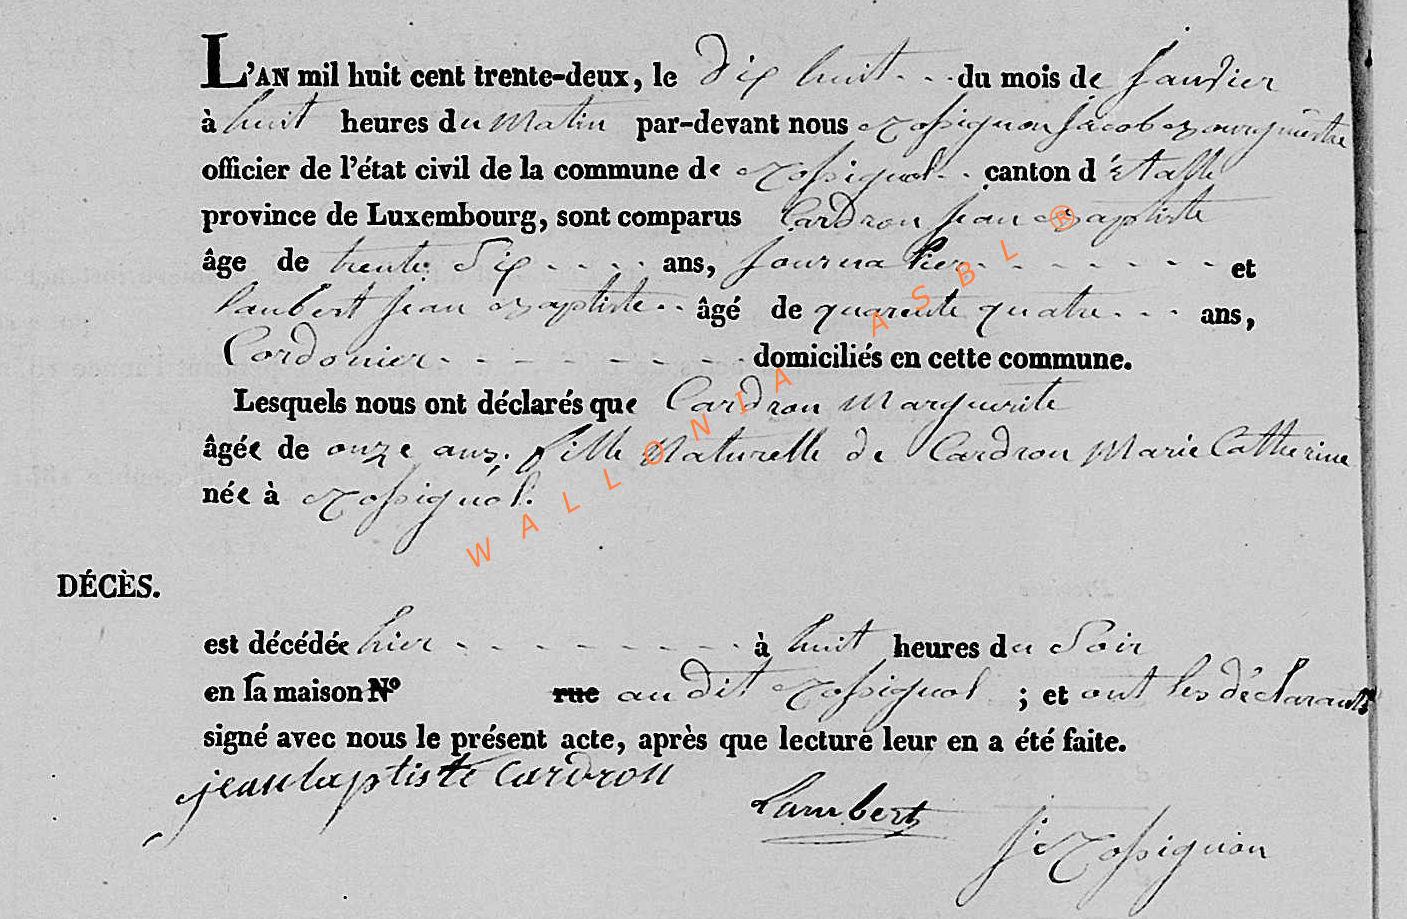 L'AN mil huit cent trente-deux, le dix huit du mois de Janvier
à huit heures du matin par-devant nous Rossignon Jacob Bourgmestre
officier de l'état civil de la commune de Rossignol canton d'étalle
province de Luxembourg, sont comparus Cardron Jean Baptiste
âge de trente six ans, Journalier et
Lambert Jean Baptiste âgé de quarente quatre ans,
Cordonier domiciliés en cette commune.
Lesquels nous ont déclarés que Cardron Marguerite
âgée de onze ans, fille Naturelle de Cardron Marie Catherine
née à Rossignol.
DÉCÈS.
est décédée hier à huit heures du Soir
en sa maison N° rue au dit Rossignol ; et ont les déclarants
signé avec nous le présent acte, après que lecture leur en a été faite.
jean baptiste Cardron
Lambert
J. Rossignon
WALLONIA ASBL ®